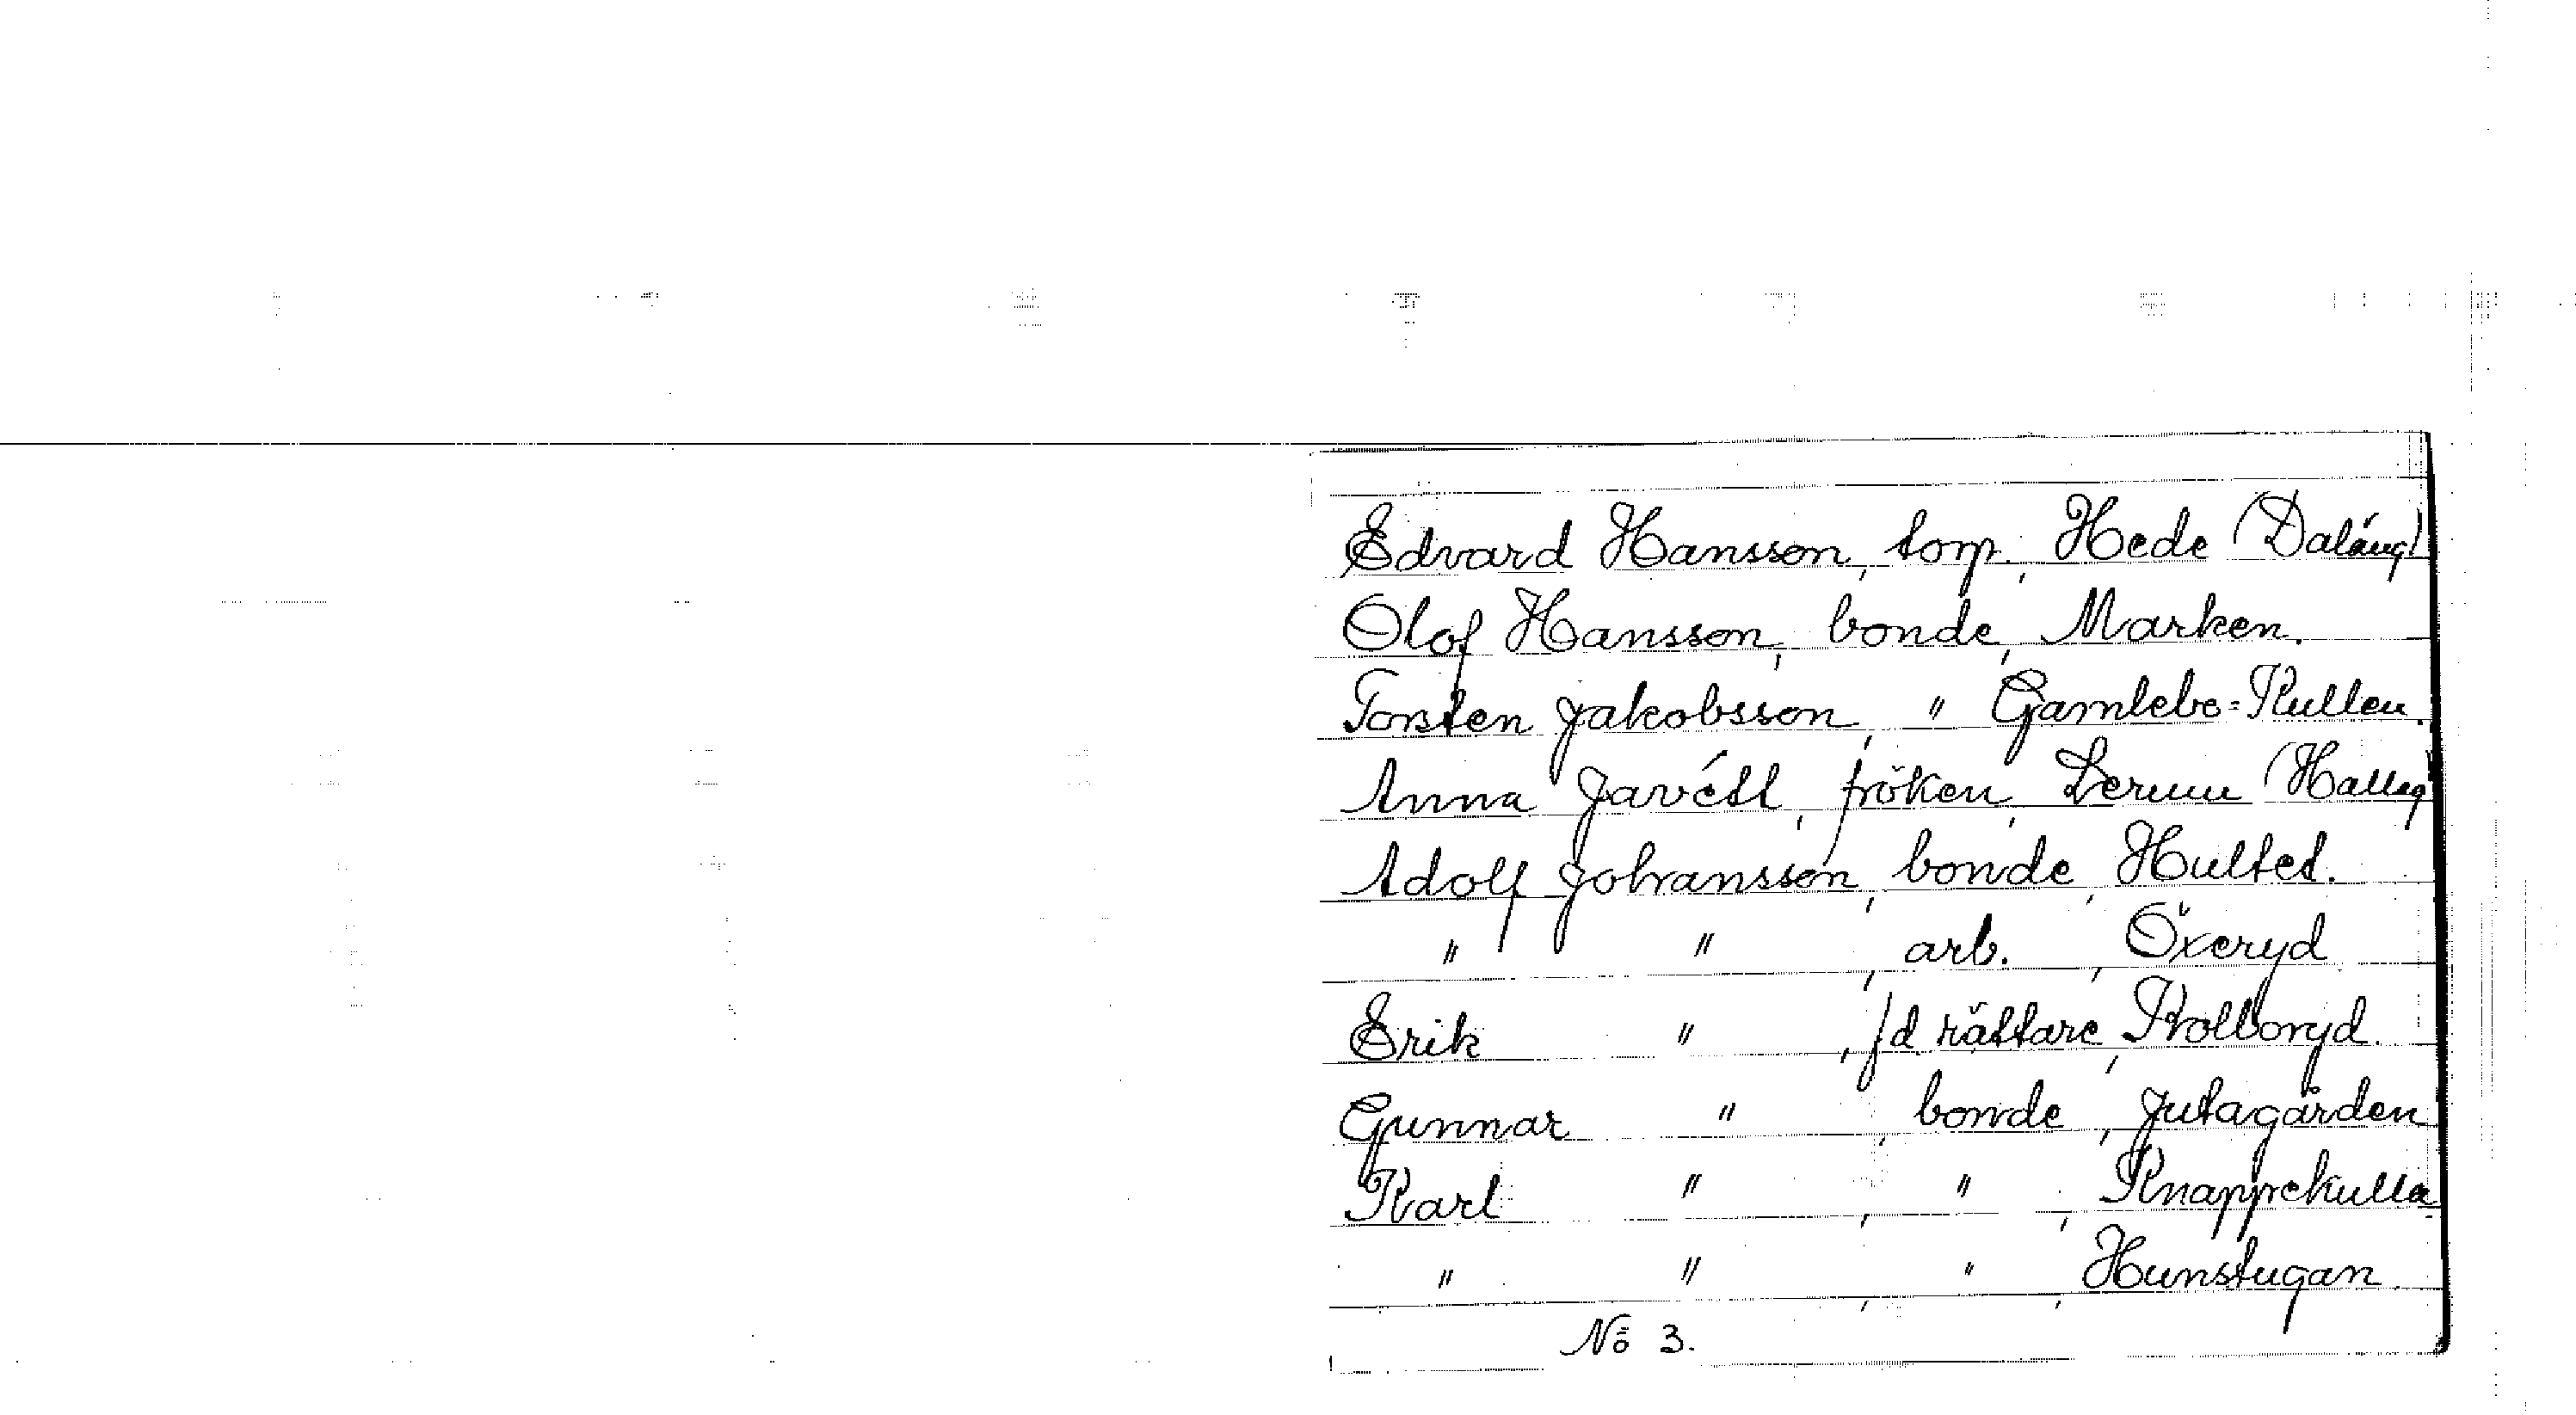 Edvard Hansson, torp., Hede (Daläng)
Olof Hansson, bonde, Marken.
Torsten Jakobsson, " Gamlebo=Kullen.
Anna Javétt, fröken, Lerum (Halleg
Adolf Johansson, bonde, Hultet.
" " , arb. , Öxeryd
Erik " , fd rättare, Kolboryd.
Gunnar " , bonde, Jutagården
Karl " , " , Knappekulla
" " , " , Hunstugan
No 3.